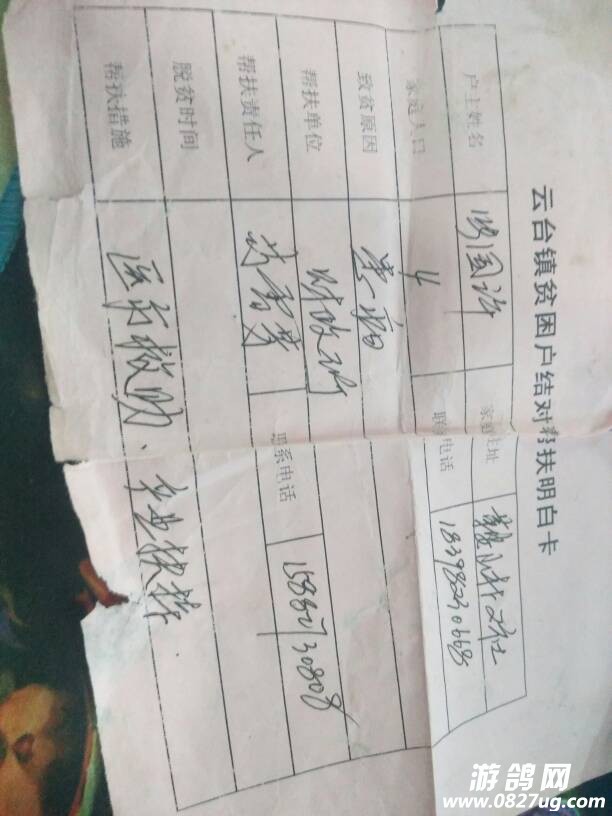 云台镇贫困户结对帮扶明白卡
户主姓名 家庭住址
家庭人口 4 联系电话 18398230668
致贫原因 患病
帮扶单位 财政所
帮扶责任人 联系电话 15882730808
脱贫时间
帮扶措施 医疗救助、产业扶持
游鸽网
www.0827ug.com